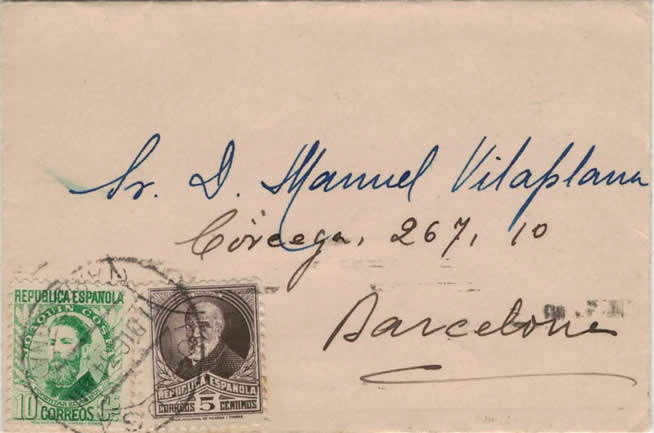 Sr. D. Manuel Vilaplana
Córcega, 267, 10
Barcelona
REPUBLICA ESPAÑOLA
JOAQUIN COSTA
10 CORREOS Cs
REPUBLICA ESPAÑOLA
CORREOS 5 CENTIMOS